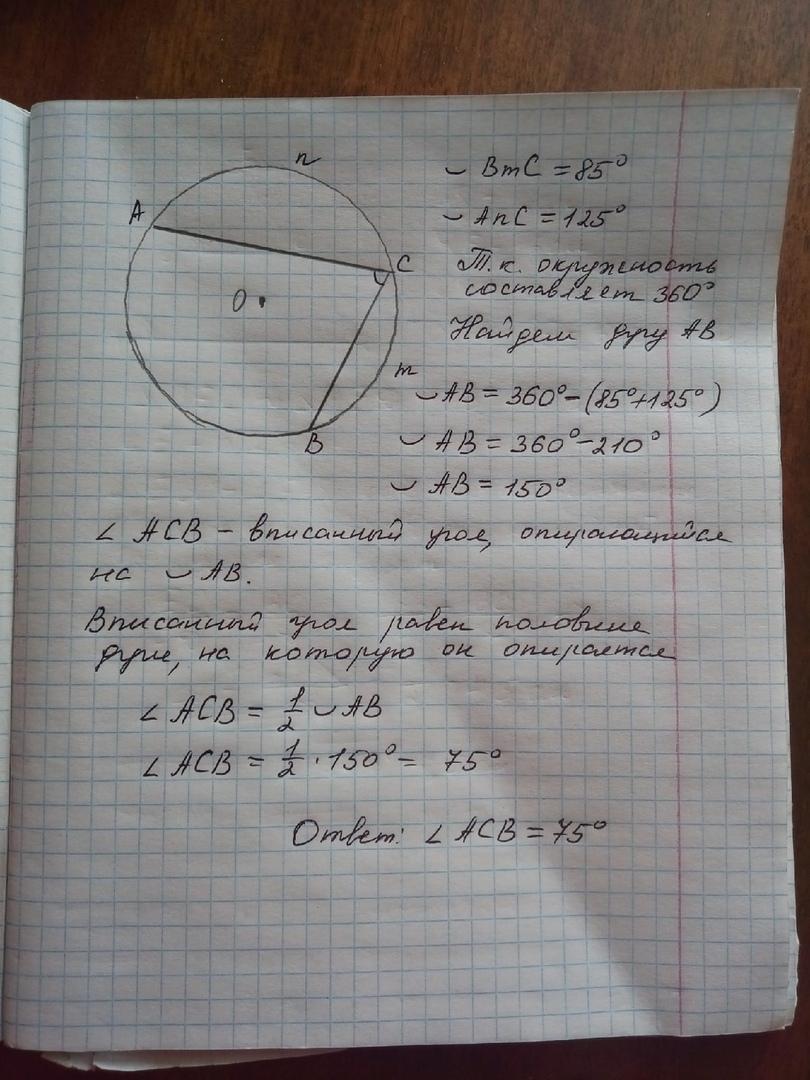 n
A
C
O
m
B
◡ BmC = 85°
◡ AnC = 125°
Т.к. окружность
составляет 360°
Найдем дугу AB
◡ AB = 360° - (85°+125°)
◡ AB = 360° - 210°
◡ AB = 150°
∠ ACB - вписанный угол, опирающийся
на ◡ AB.
Вписанный угол равен половине
дуги, на которую он опирается
∠ ACB = 1/2 ◡ AB
∠ ACB = 1/2 · 150° = 75°
Ответ: ∠ ACB = 75°